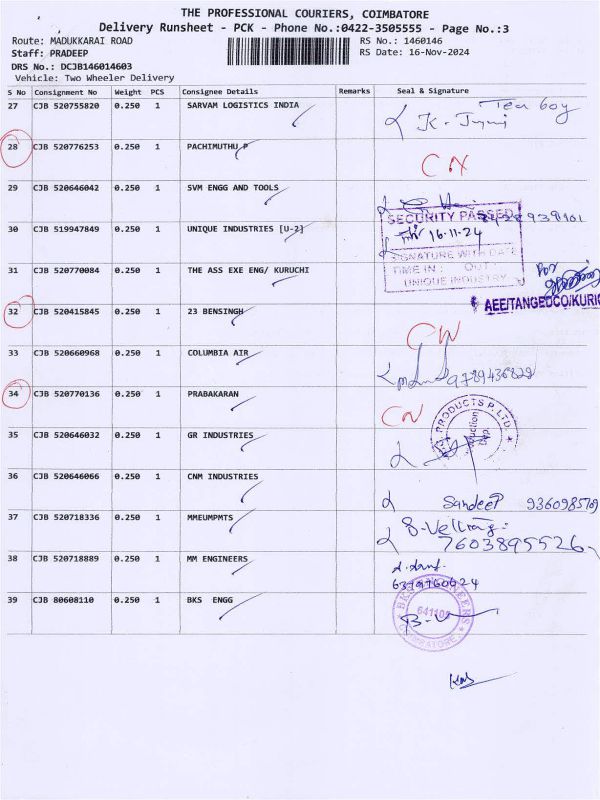 THE PROFESSIONAL COURIERS, COIMBATORE
Delivery Runsheet - PCK - Phone No.:0422-3505555 - Page No.:3
Route: MADUKKARAI ROAD RS No.: 1460146
Staff: PRADEEP RS Date: 16-Nov-2024
DRS No.: DCJB146014603
Vehicle: Two Wheeler Delivery
S No Consignment No Weight PCS Consignee Details Remarks Seal & Signature
27 CJB 520755820 0.250 1 SARVAM LOGISTICS INDIA Tea boy
28 CJB 520776253 0.250 1 PACHIMUTHU P CN
29 CJB 520646042 0.250 1 SVM ENGG AND TOOLS
SECURITY PASSED
30 CJB 519947849 0.250 1 UNIQUE INDUSTRIES [U-2] 16-11-24
SIGNATURE WITH DATE
TIME IN : OUT:
UNIQUE INDUSTRY
31 CJB 520770084 0.250 1 THE ASS EXE ENG/ KURUCHI
AEE/TANGEDCO/KURIC
32 CJB 520415845 0.250 1 23 BENSINGH CN
33 CJB 520660968 0.250 1 COLUMBIA AIR 9789436829
34 CJB 520770136 0.250 1 PRABAKARAN CN
PRODUCTS P. LTD.
35 CJB 520646032 0.250 1 GR INDUSTRIES
36 CJB 520646066 0.250 1 CNM INDUSTRIES Sandeep
37 CJB 520718336 0.250 1 MMEUMPMTS 7603895526
38 CJB 520718889 0.250 1 MM ENGINEERS
39 CJB 80608110 0.250 1 BKS ENGG
BKS ENGINEERS
COIMBATORE